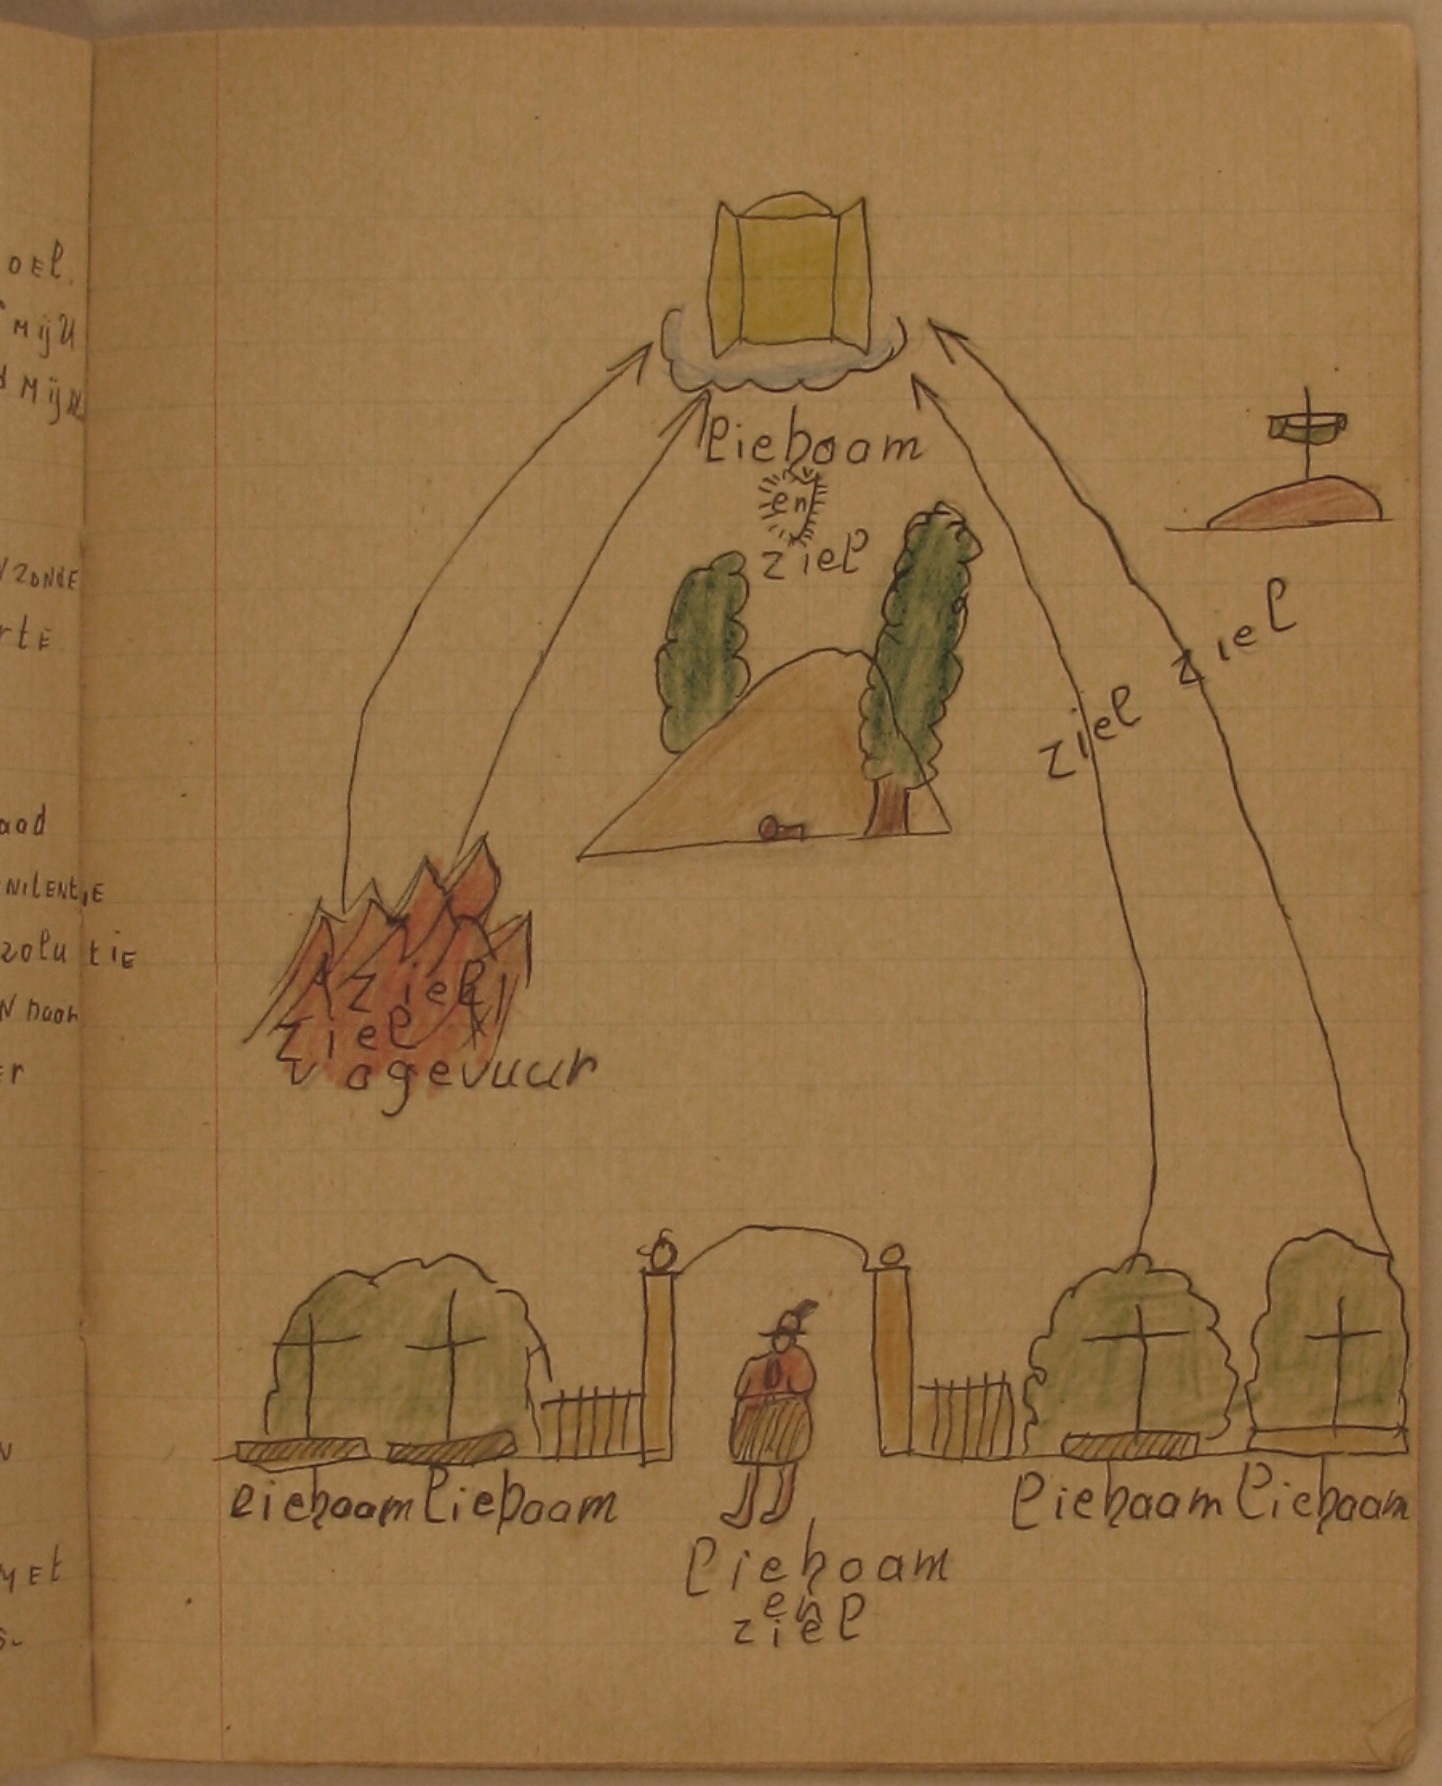 oEl.
MijN
MijN
ZONdE
rtE
aad
NitENtiE
zolutiE
N naar
Er
N
MEt
lichaam
en
ziel
ziel
ziel
ziel
ziel
vagevuur
lichaam lichaam
lichaam lichaam
lichaam
en
ziel